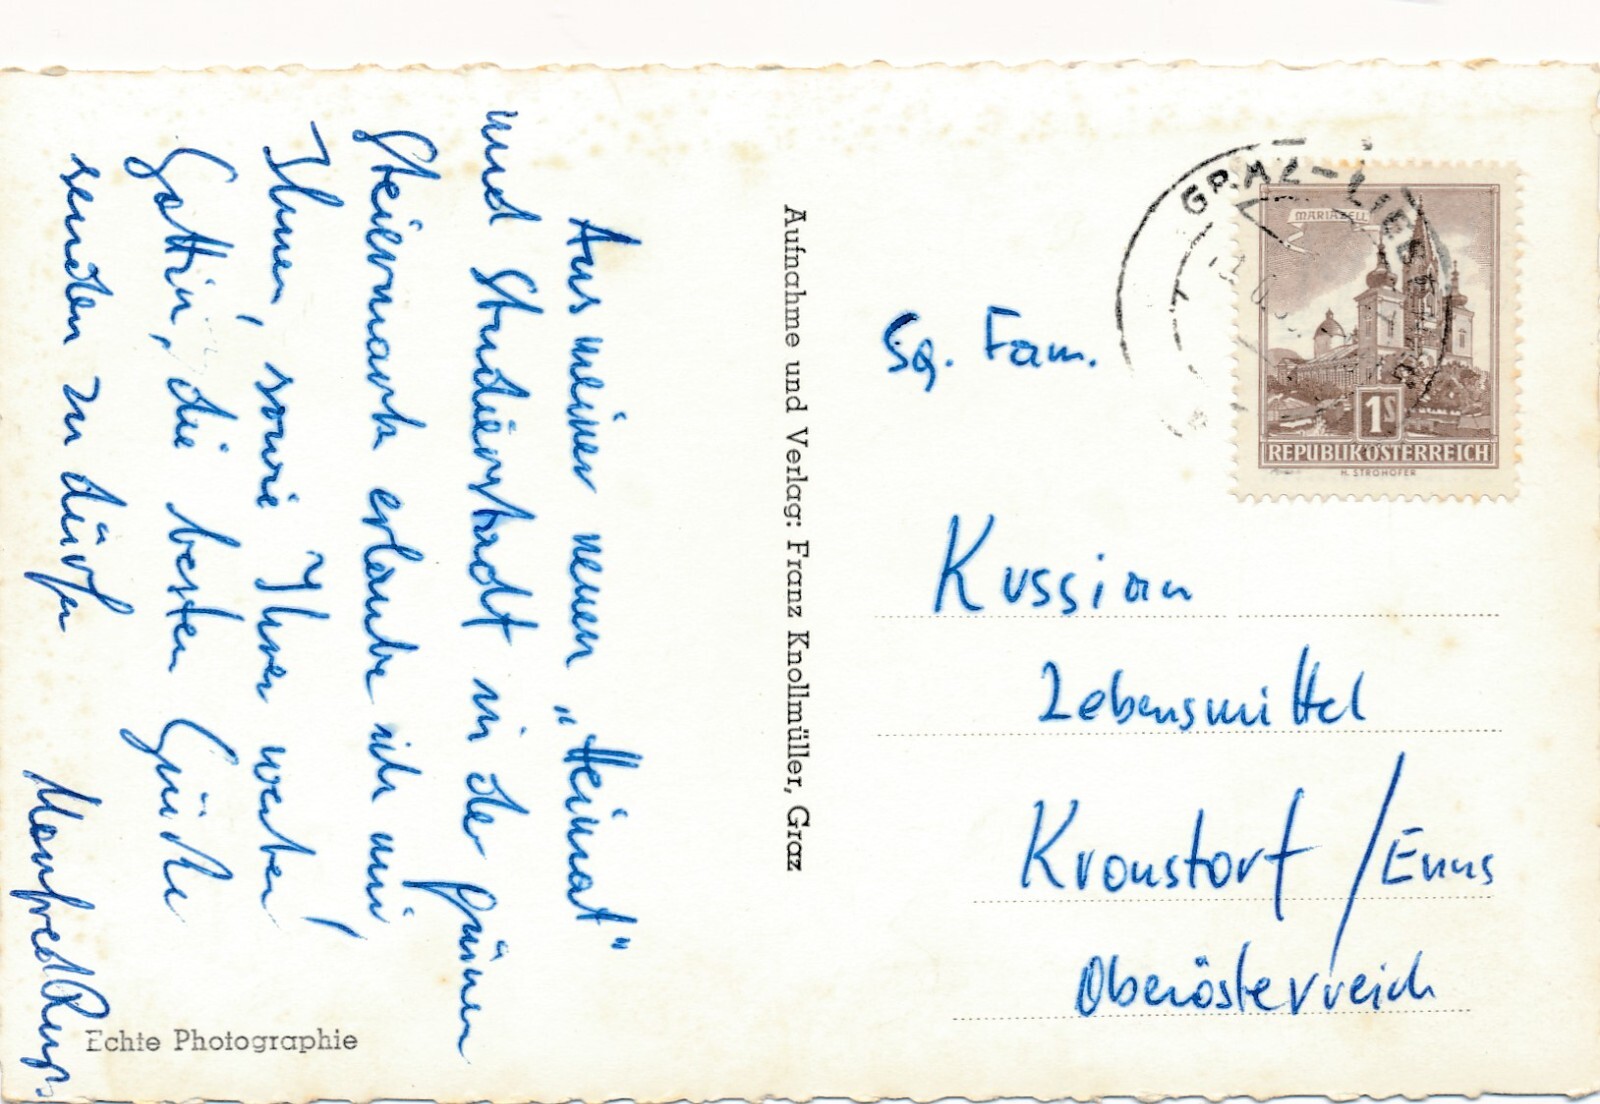 Aus meiner neuen „Heimat"
und Studierstadt in der grünen
Steiermark erlaube ich mir
Ihnen, sowie Ihrer werten
Gattin, die besten Grüße
senden zu dürfen
Manfred
Echte Photographie
Aufnahme und Verlag: Franz Knollmüller, Graz
GRAZ-LIEBENAU
MARIAZELL
1S
REPUBLIK ÖSTERREICH
H. STROHOFER
Fam.
Kussian
Lebensmittel
Kronstorf / Enns
Oberösterreich